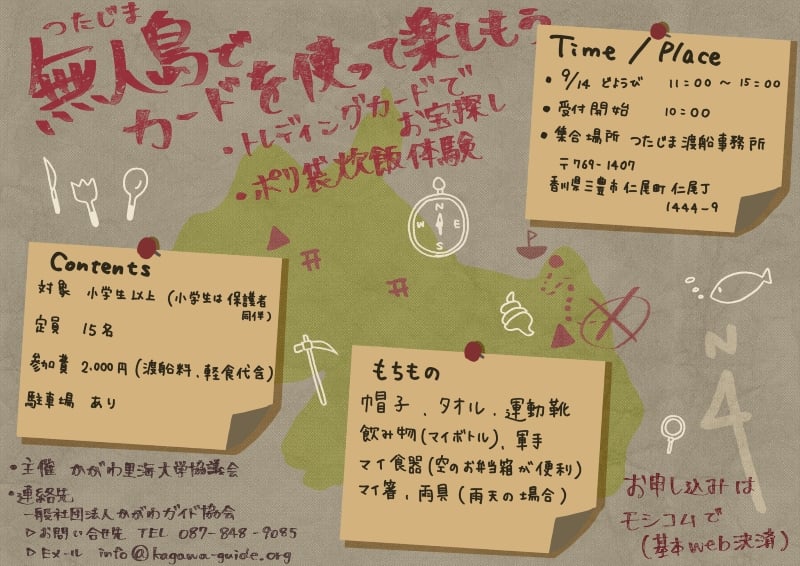 つたじま
無人島で
カードを使って楽しもう
・トレディングカードで
お宝探し
・ポリ袋炊飯体験
Time / Place
・9/14 どようび 11:00 〜 15:00
・受付開始 10:00
・集合場所 つたじま渡船事務所
〒769-1407
香川県三豊市仁尾町仁尾丁
1444-9
N
W E
S
Contents
対象 小学生以上 (小学生は保護者
同伴)
定員 15名
参加費 2.000円 (渡船料、軽食代含)
駐車場 あり
もちもの
帽子、タオル、運動靴
飲み物(マイボトル)、軍手
マイ食器(空のお弁当箱が便利)
マイ箸、雨具(雨天の場合)
N
・主催 かがわ里海大学協議会
・連絡先
一般社団法人かがわガイド協会
▷お問い合せ先 TEL 087-848-9085
▷Eメール info@kagawa-guide.org
お申し込みは
モシコムで
(基本web決済)